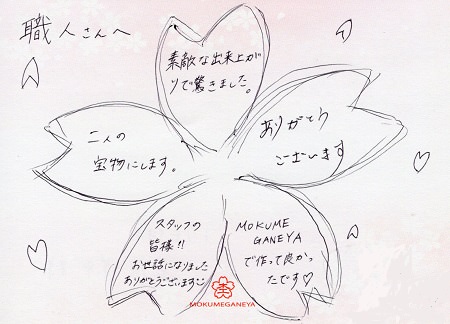 職人さんへ
素敵な出来上が
りで驚きました。
ありがとう
ございます
二人の
宝物にします。
スタッフの
皆様!!
お世話になりました
ありがとうございます
MOKUME
GANEYA
で作って良かっ
たです♡
MOKUMEGANEYA